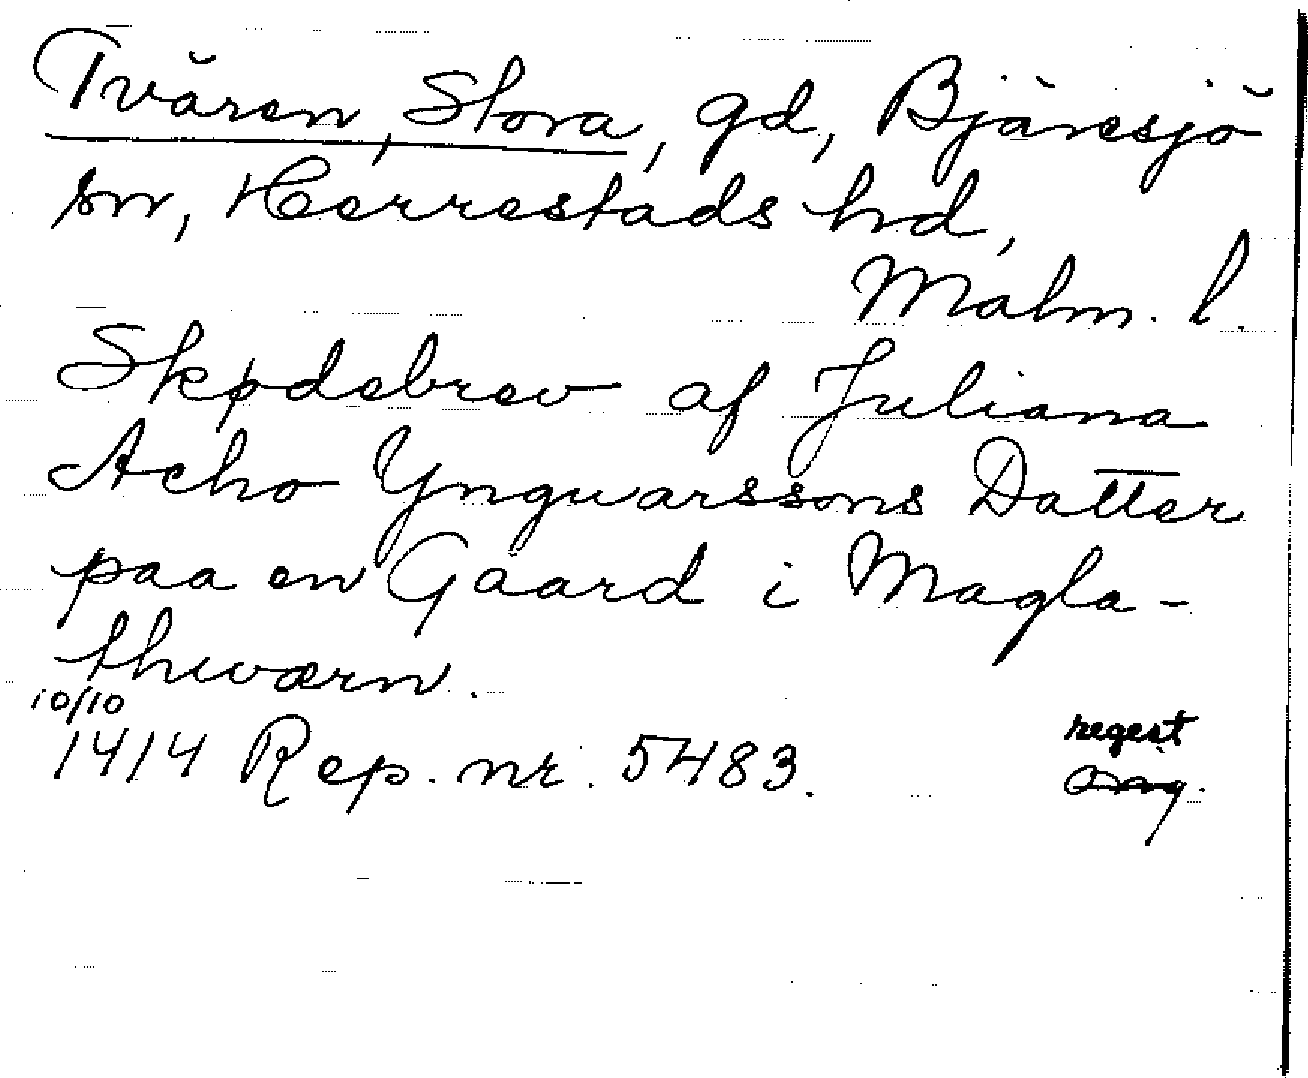 Tvären, Stora, gd, Bjäresjö
sn, Herrestads hd,
Malm. l.
Skødebrev af Juliana
Acho Ynguarssons Datter
paa en Gaard i Magla-
thwærn.
10/10
1414 Rep. nr. 5483.
regest